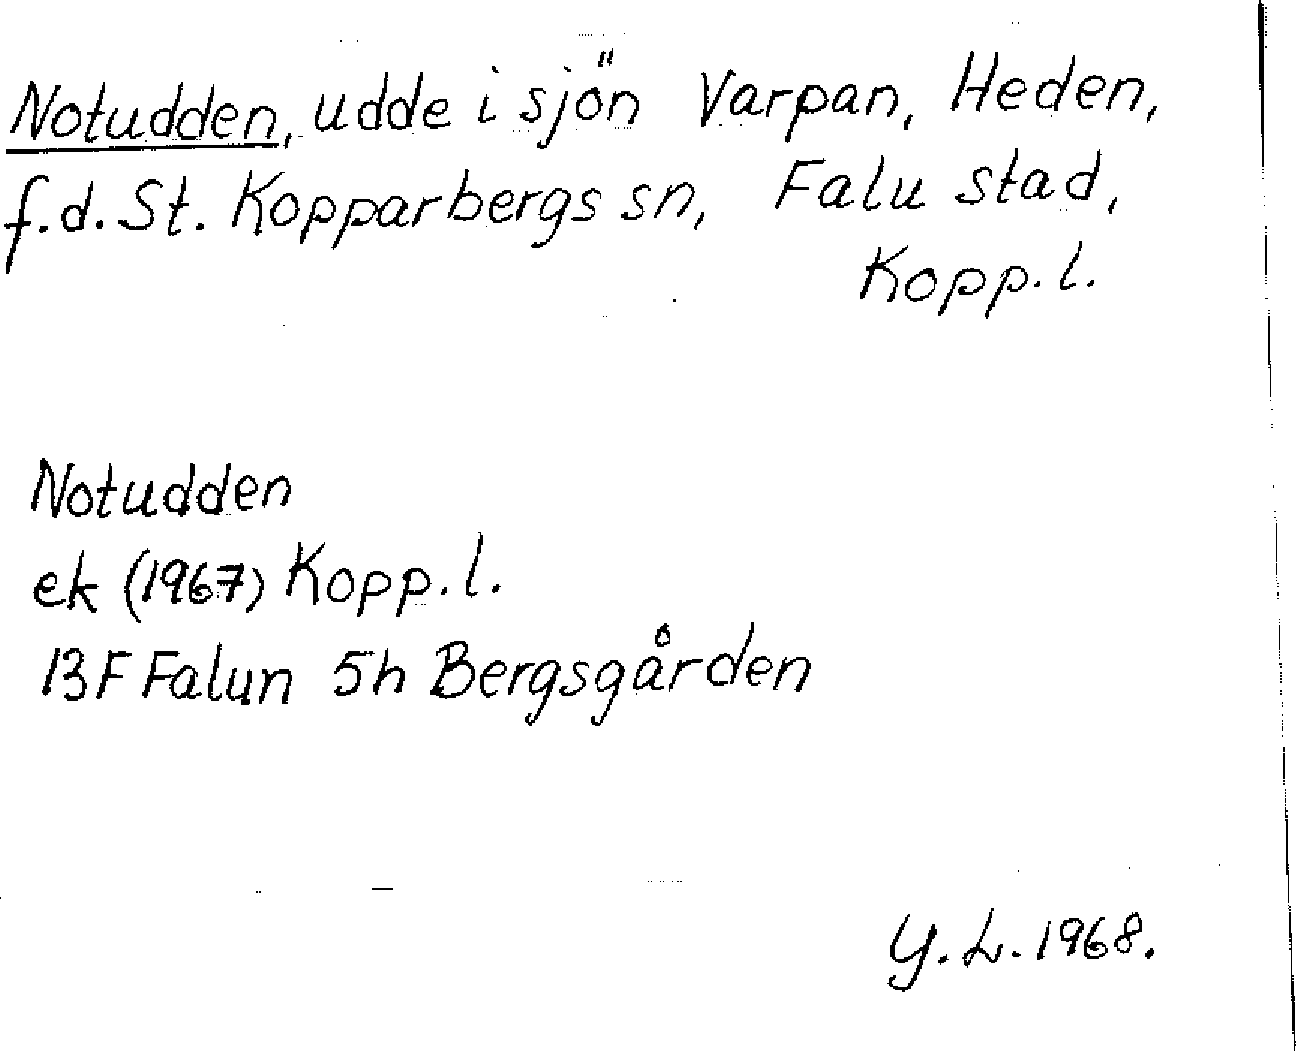 Notudden, udde i sjön Varpan, Heden,
f.d. St. Kopparbergs sn, Falu stad,
Kopp. l.
Notudden
ek (1967) Kopp. l.
13F Falun 5h Bergsgården
Y. L. 1968.